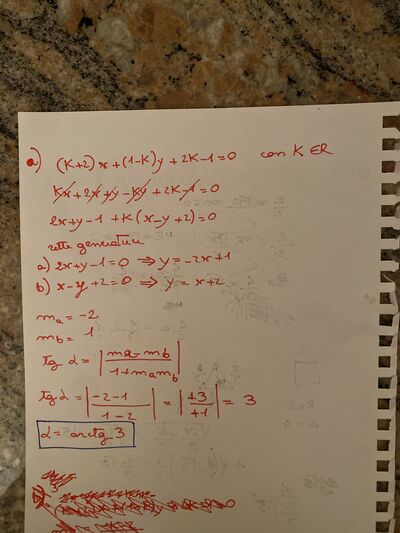 a) (K+2)x+(1-K)y+2K-1=0 con K ∈ R
Kx+2x+y-Ky+2K-1=0
2x+y-1+K(x-y+2)=0
rette generatrici
a) 2x+y-1=0 ⇒ y=-2x+1
b) x-y+2=0 ⇒ y=x+2
ma=-2
mb=1
tg α = |ma-mb / 1+mamb|
tg α = |-2-1 / 1-2| = |+3 / +1| = 3
α= arctg 3